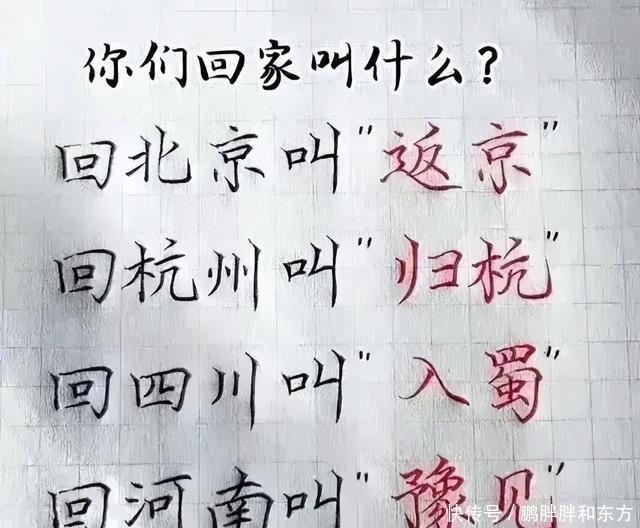 你们回家叫什么？
回北京叫"返京"
回杭州叫"归杭"
回四川叫"入蜀"
回河南叫"豫见
快传号／鹏胖胖和东方